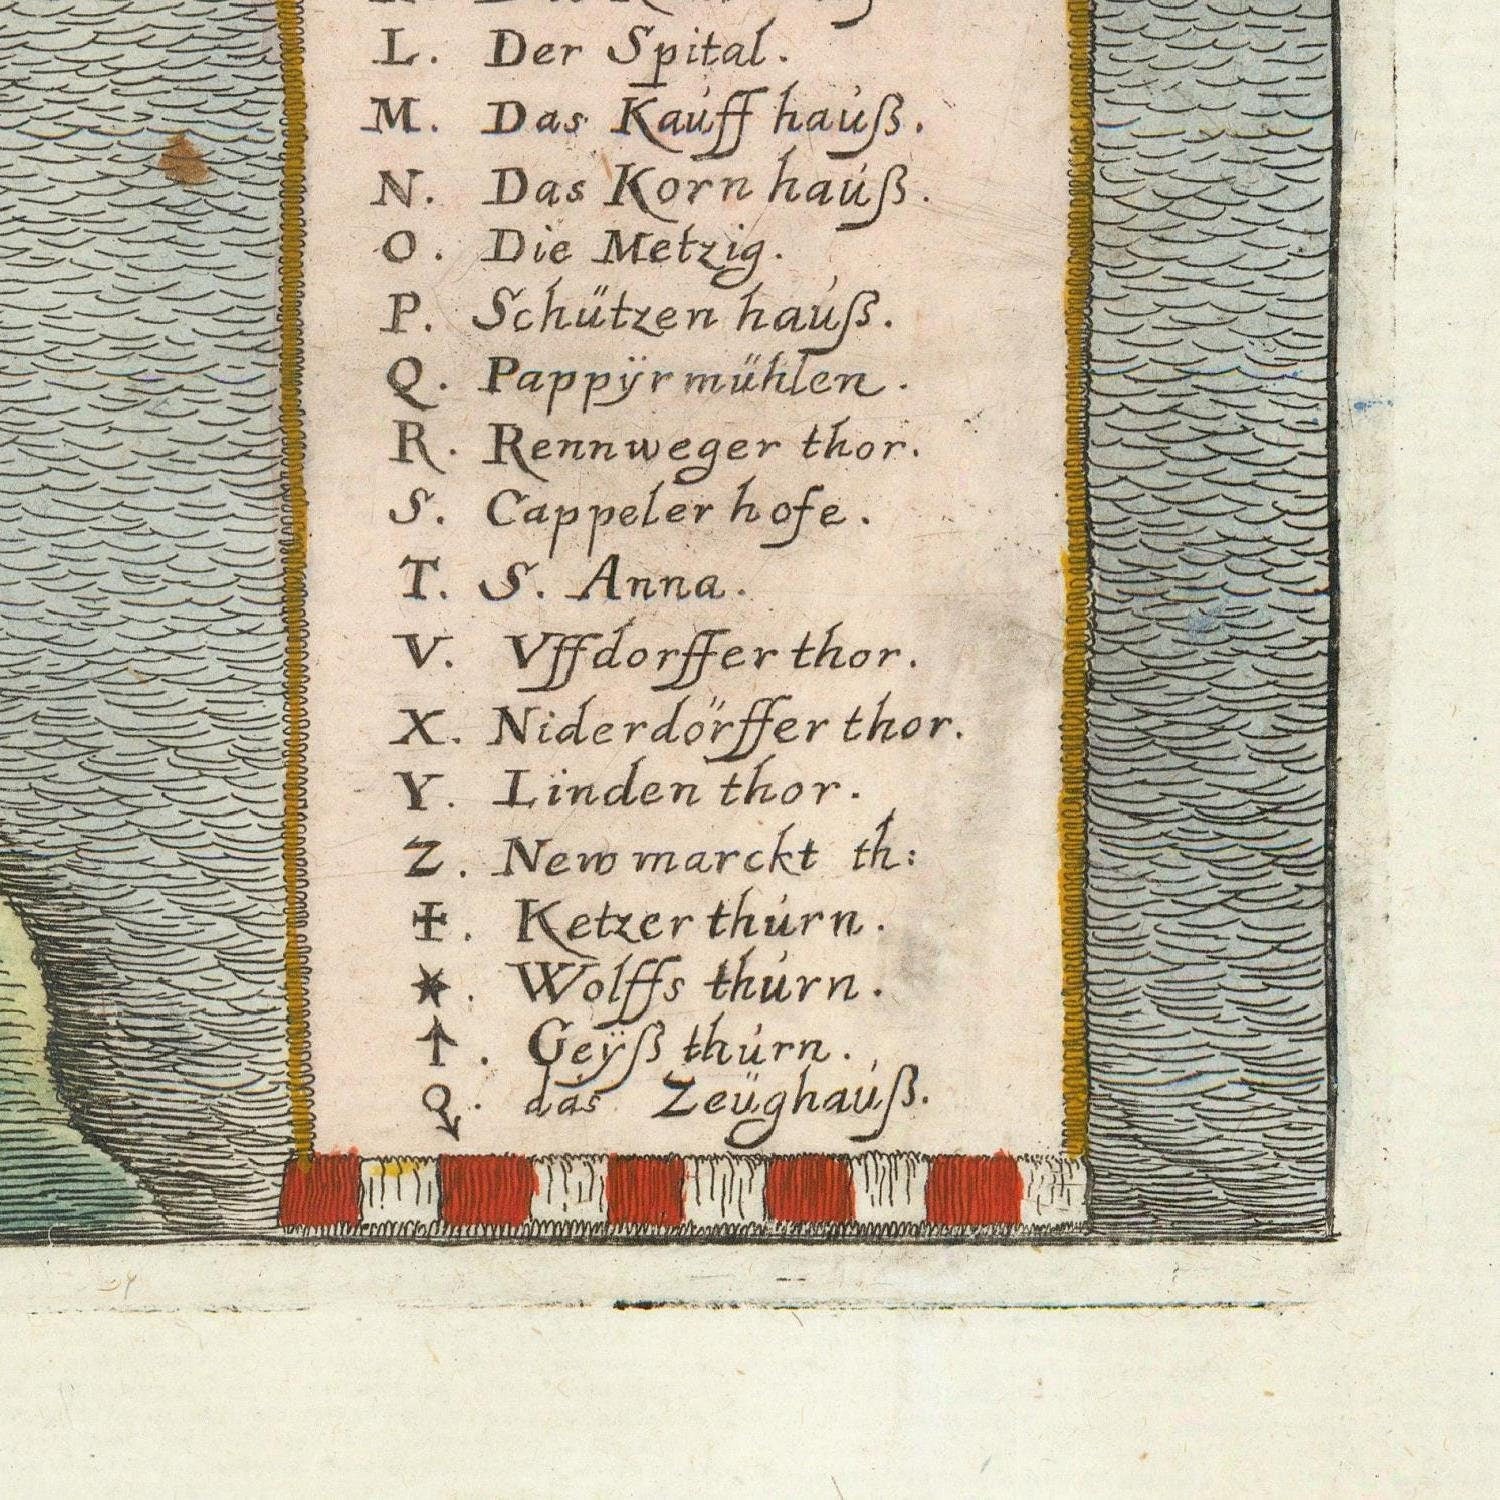 L. Der Spital.
M. Das Kauff hauß.
N. Das Korn hauß.
O. Die Metzig.
P. Schützen hauß.
Q. Pappÿr mühlen.
R. Rennweger thor.
S. Cappeler hofe.
T. S. Anna.
V. Vffdorffer thor.
X. Niderdörffer thor.
Y. Linden thor.
Z. New marckt th:
✠. Ketzer thurn.
✶. Wolffs thurn.
↑. Geÿß thurn.
♂. das Zeüghauß.